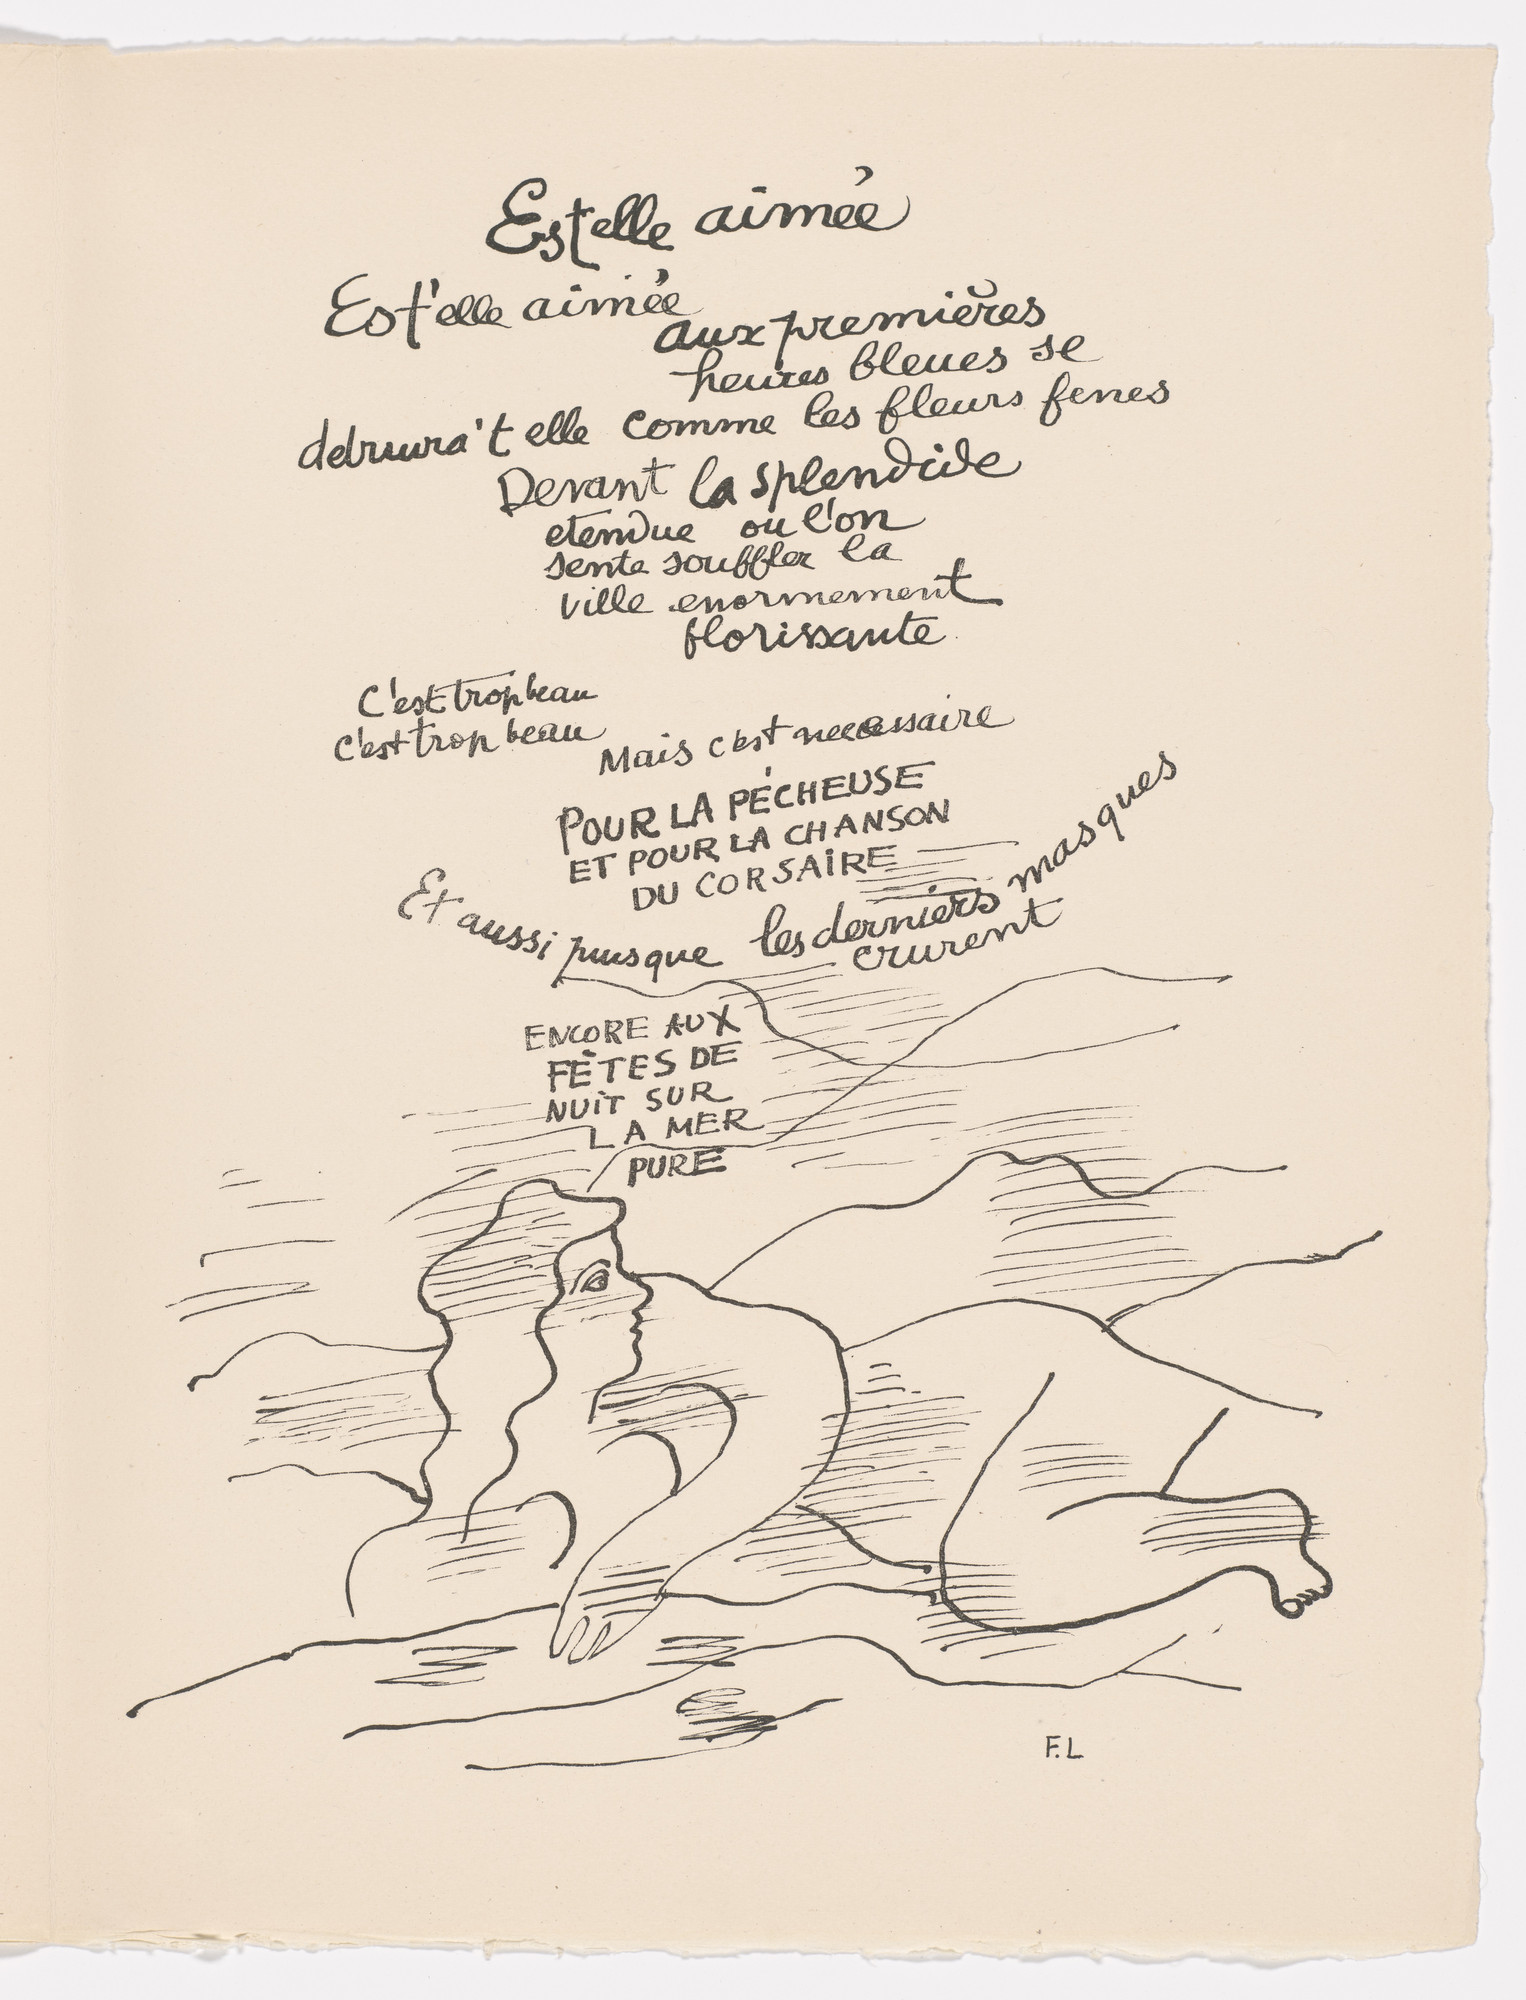 Est elle aimée
Est'elle aimée
aux premières
heures bleues se
detruira't elle comme les fleurs fenes
Devant la splendide
etendue ou l'on
sente souffler la
ville enormement
florissante
C'est trop beau
c'est trop beau
Mais c'est necessaire
POUR LA PÉCHEUSE
ET POUR LA CHANSON
DU CORSAIRE
Et aussi pusque les derniers masques
crurent
ENCORE AUX
FÊTES DE
NUIT SUR
LA MER
PURE
F.L